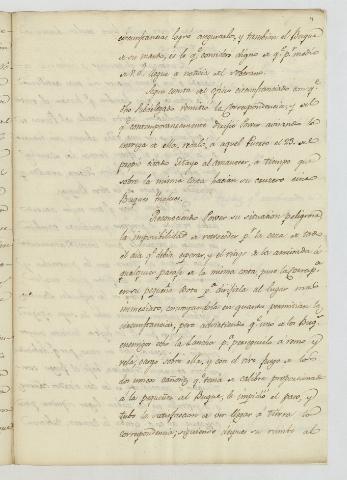 circunstancias logró asegurarla, y tambien el Buque
de su mando, es lo q.e considero digno de q.e p.r medio
de V.E. llegue a noticia del Soberano.
Segun consta del oficio circunstanciado con q.e
dho Subdelegado remitio la correspondencia, y del
q.e contemporaneamente
entrega de ella, recaló a aquel Puerto el 23 del
pp.do citado Mayo al amanecer, a tiempo que
sobre la misma costa hacian su crucero cinco
Buques Yngleses.
Reconociendo Ferrer su situacion peligrosa
la imposibilidad de retroceder p.r la cerca de todo
el dia q.e debia esperar, y el riesgo de la arrivada a
qualquier parage de la misma costa, puso la Corresp.a
en su pequeño Bote p.a dirijirla al lugar mas
inmediato, comboyandola en quanto permitian las
circunstancias, pero advirtiendo q.e uno de los Buq.s
enemigos echó la Lancha p.a perseguirlo a remo y
vela, cargó sobre ella, y con el vivo fuego de los
dos unicos cañones q.e tenia de calibre proporcionado
a la pequeñez del Buque, le impidió el paso, y
tubo la satisfaccion de ver llegar a tierra la
correspondencia; siguiendo despues su rumbo al